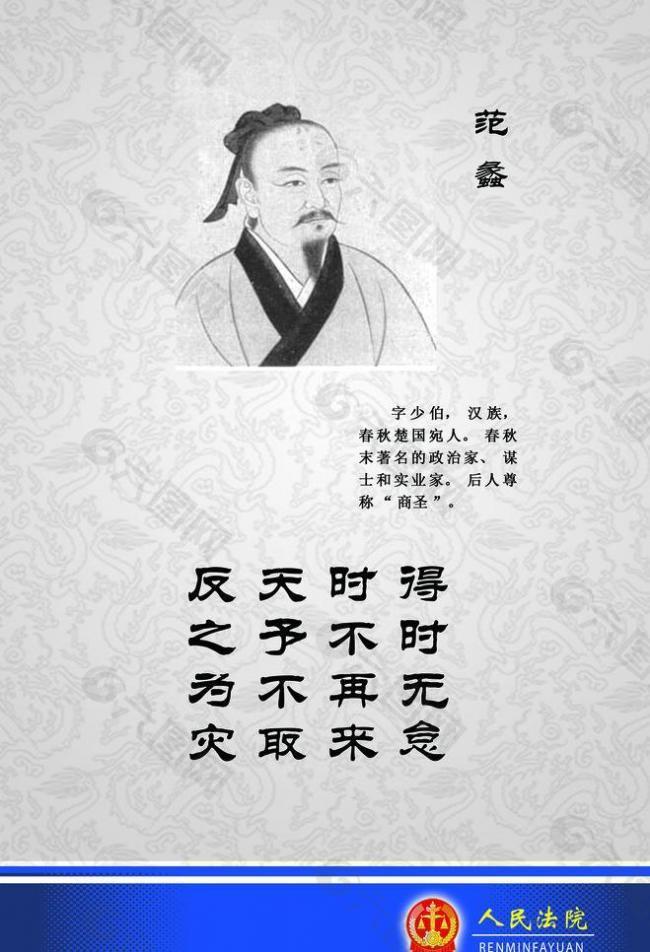 范蠡
字少伯，汉族，
春秋楚国宛人。春秋
末著名的政治家、谋
士和实业家。后人尊
称“商圣”。
得时无怠
时不再来
天予不取
反之为灾
人民法院
RENMINFAYUAN